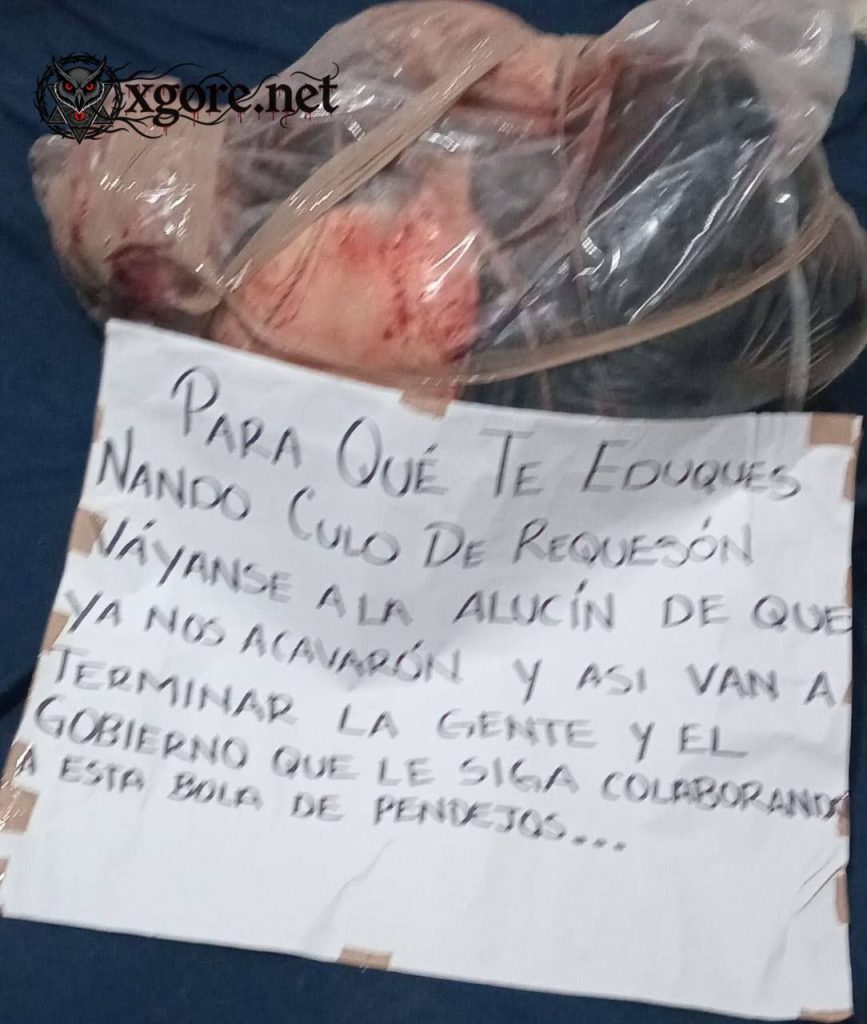 xgore.net
PARA QUÉ TE EDUQUES
NANDO CULO DE REQUESÓN
VÁYANSE A LA ALUCÍN DE QUE
YA NOS ACAVARÓN Y ASI VAN A
TERMINAR LA GENTE Y EL
GOBIERNO QUE LE SIGA COLABORANDO
A ESTA BOLA DE PENDEJOS...